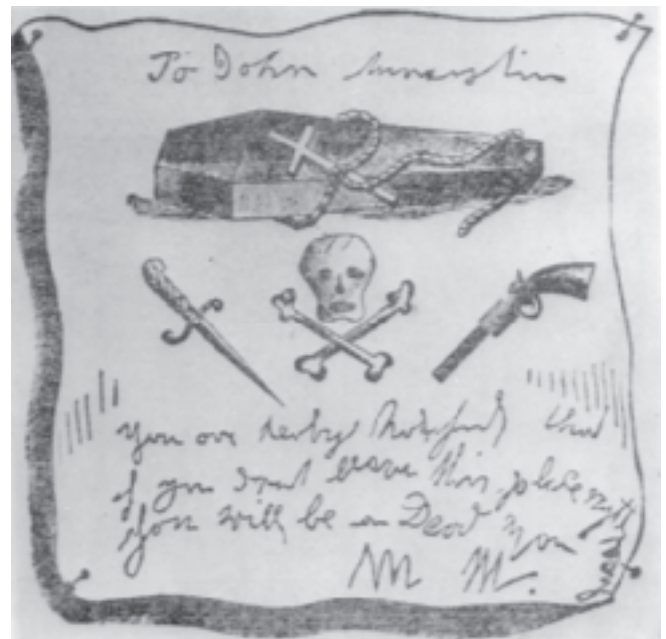 To John
you are herby Notefied that
if you dont leave this place
You will be a Dead Man
M M.